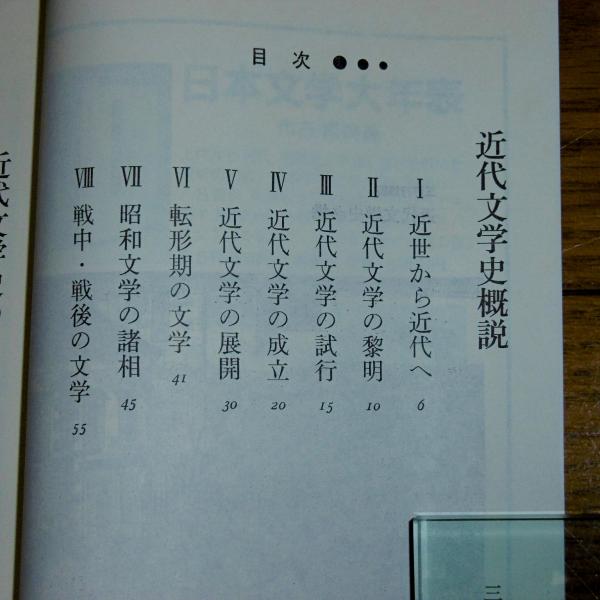 目次 ●●●
近代文学史概説
Ⅰ 近世から近代へ 6
Ⅱ 近代文学の黎明 10
Ⅲ 近代文学の試行 15
Ⅳ 近代文学の成立 20
Ⅴ 近代文学の展開 30
Ⅵ 転形期の文学 41
Ⅶ 昭和文学の諸相 45
Ⅷ 戦中・戦後の文学 55
近代文学史
日本文学大年表
三